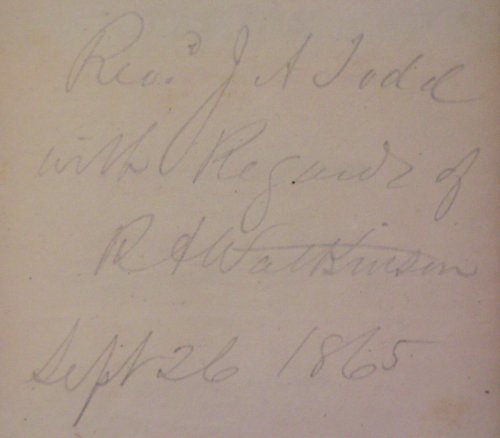 Revd. J A Todd
with Regards of
R A Watkinson
Sept 26 1865